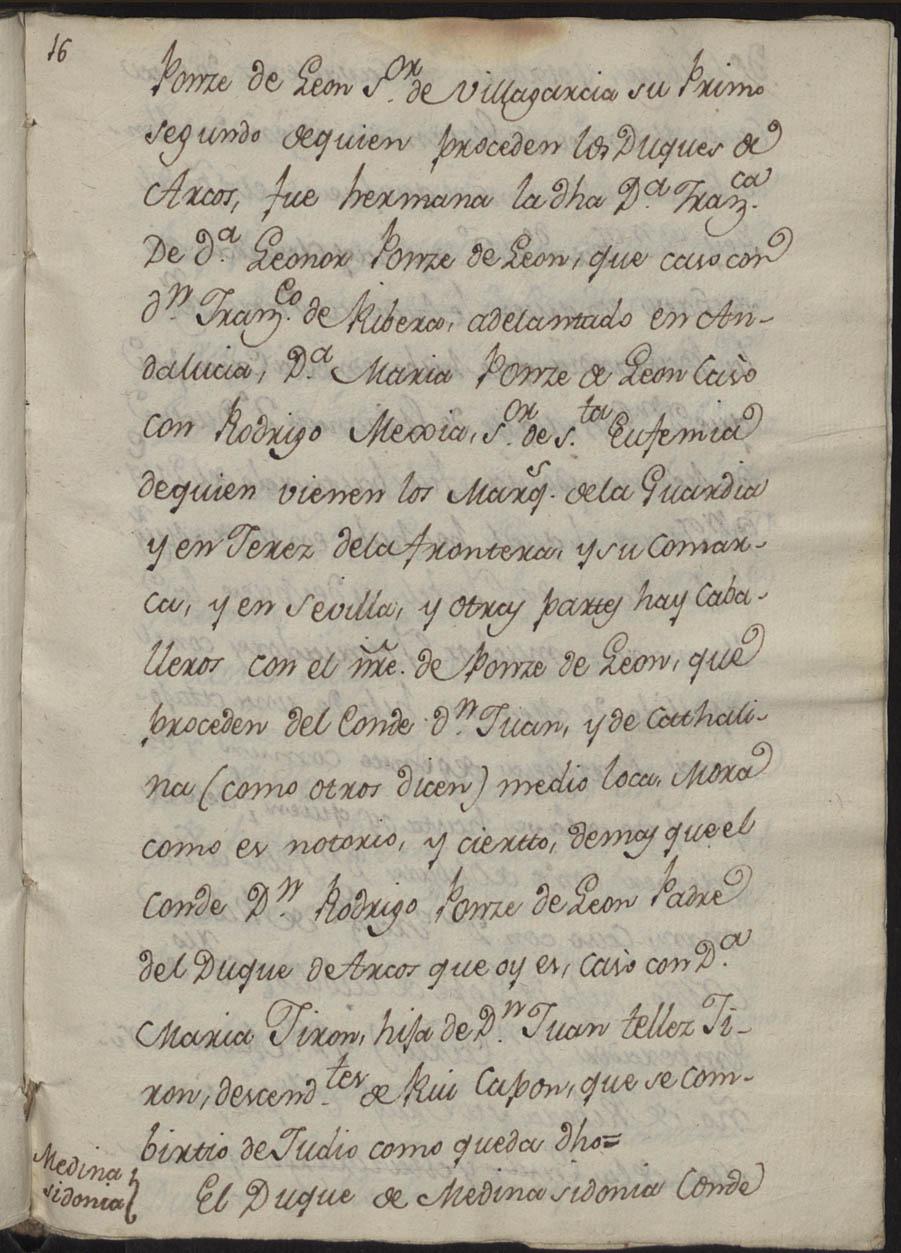 16
Ponze de Leon S.or de Villagarcia su Primo
segundo dequien proceden los Duques de
Arcos, fue hermana la dha D.a Franz.ca
De d.a Leonor Ponze de Leon, que caso con
d.n Franz.co de Ribera, adelantado en An-
dalucia, D.a Maria Ponze de Leon Casò
con Rodrigo Mexia, s.or de s.ta Eufemia
dequien vienen los Marq.s dela Guardia
y en Jerez dela frontera, y su comar-
ca, y en Sevilla, y otras partes hay Caba-
lleros con el nr̃e. de Ponze de Leon, que
proceden del Conde d.n Juan, y de Cathali-
na (como otros dicen) medio loca, Mora
como es notorio, y ciertto, demas que el
Conde D.n Rodrigo Ponze de Leon Padre
del Duque de Arcos que oy es, Casò con D.a
Maria Jiron, hija de D.n Juan tellez Ji-
ron, descend.tes de Rui Capon, que se com-
birtio de Judio como queda dho=
Medina
sidonia}
El Duque de Medina sidonia Conde